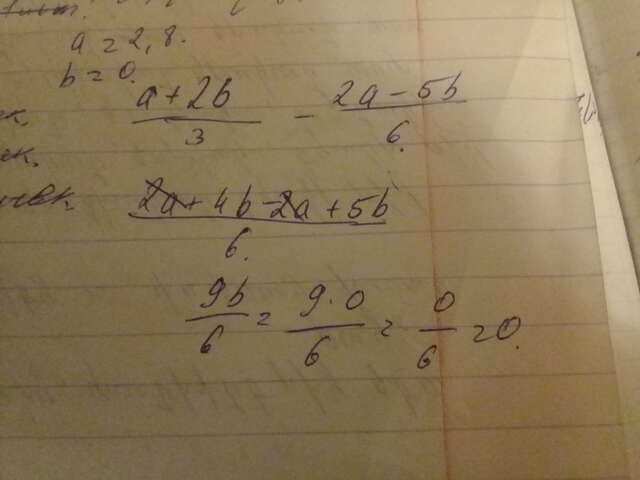 a = 2,8.
b = 0.
(a + 2b)/3 - (2a - 5b)/6.
(2a + 4b - 2a + 5b)/6.
9b/6 = 9·0/6 = 0/6 = 0.